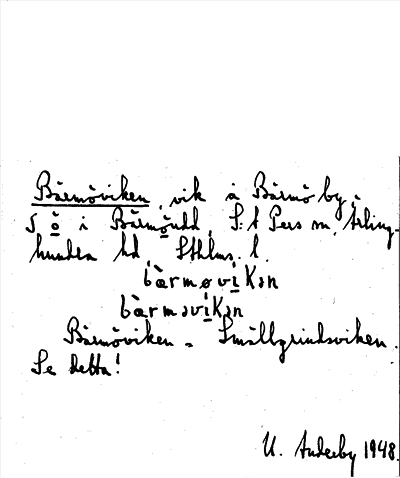 Bärmöviken, vik å Bärmö by,
S. ö i Bärmöudd, S:t Pers sn, Ärling-
hundra hd, Sthlms l.
bàrmøvìkən
bàrməvìkən
Bärmöviken = Smällgrindsviken.
Se detta!
U. Anderby 1948.